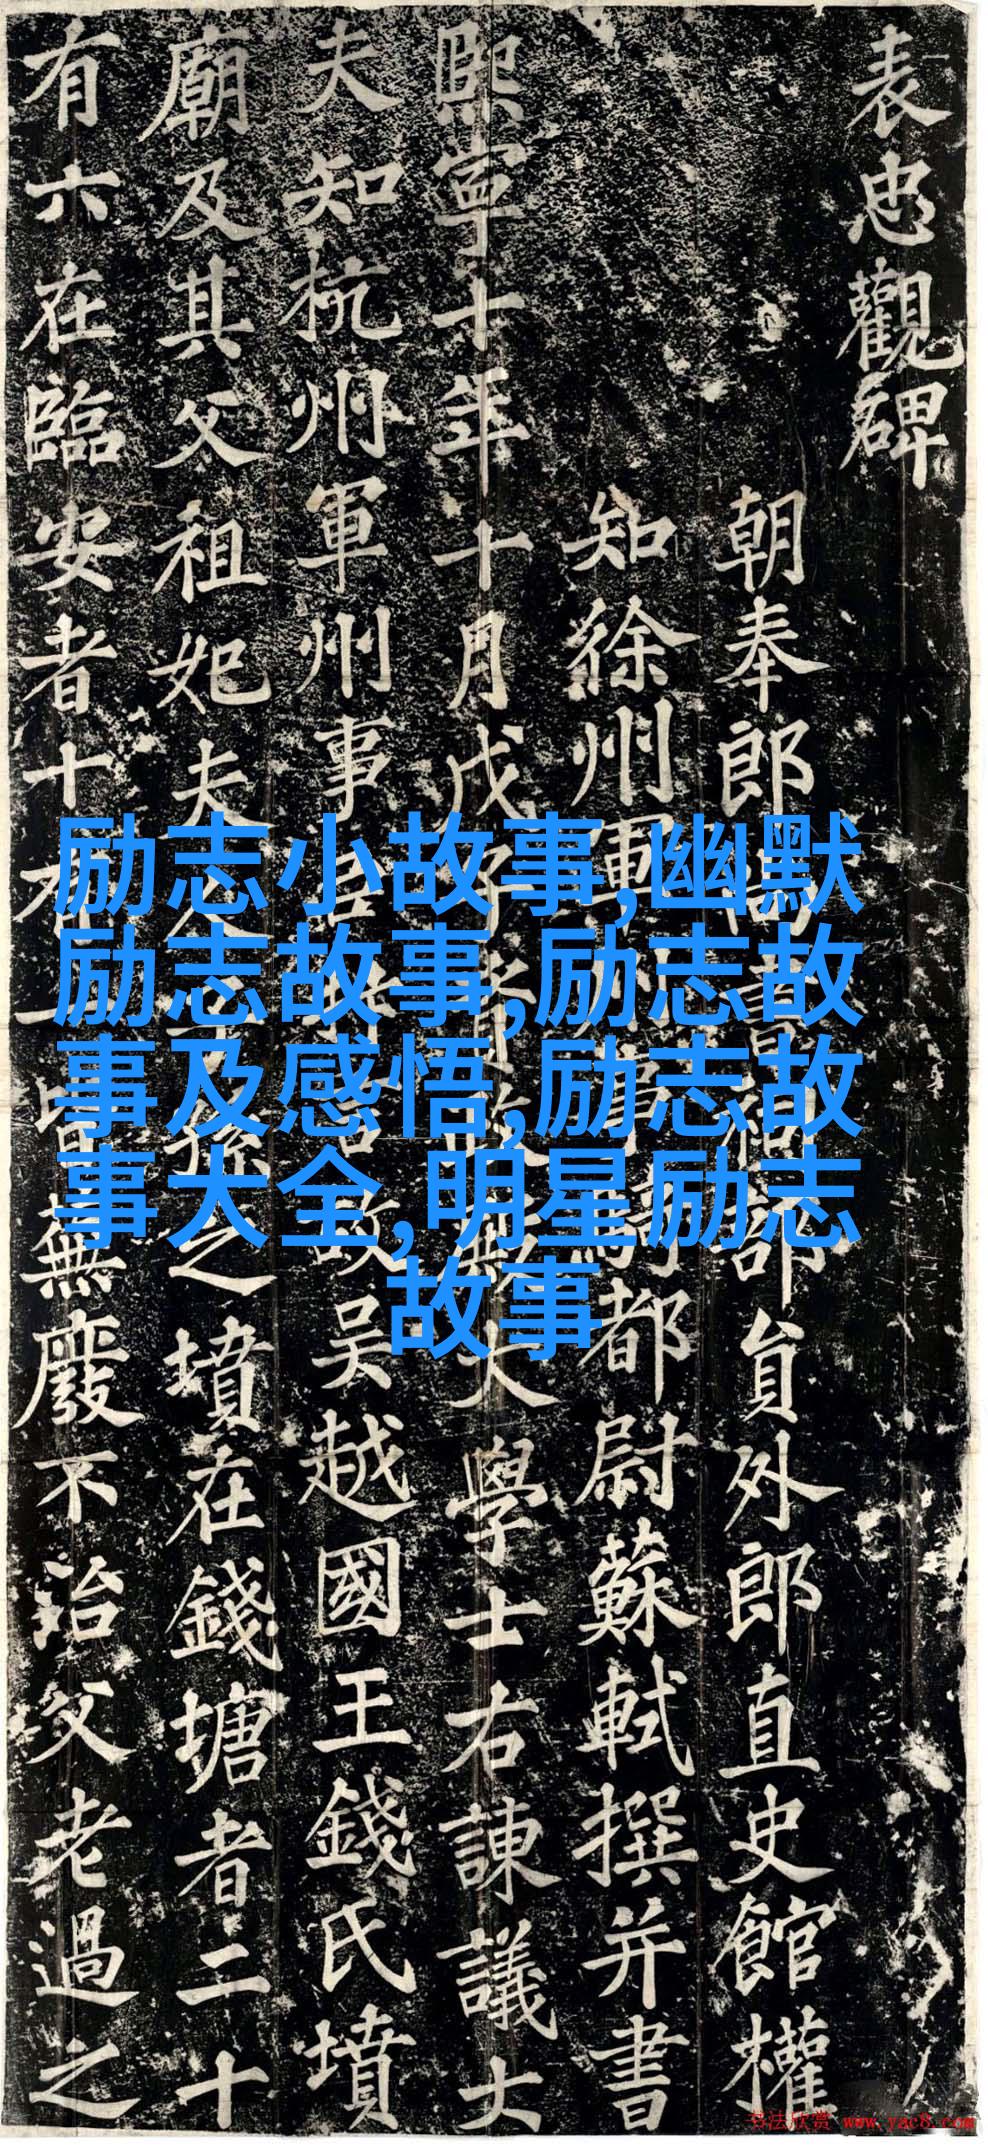 表忠觀碑
朝奉郎尚書祠部員外郎直史館權
知徐州軍州事騎都尉蘇軾撰并書
熙寧十年十月戊子資政殿大學士右諫議大
夫知杭州軍州事臣抃言故吳越國王錢氏墳
廟及其父祖妃夫人子孫之墳在錢塘者二十
有六在臨安者十有一皆蕪廢不治父老過之
励志小故事,幽默
励志故事,励志故
事及感悟,励志故
事大全,明星励志
故事
书法欣赏 www.yac8.com